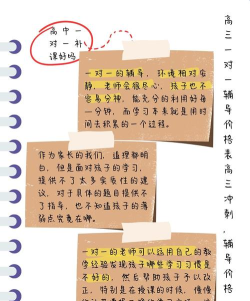 高中一
对一补
课好吗
一对一的辅导，环境相对安
静，老师会很尽心，孩子也不
容易分神，能充分的利用好每
一分钟，而学习本来就是用时
间去积累的一个过程。
作为家长的我们，道理都明
白，但是面对孩子的学习，
提供不了太多实质性的建
议，对于具体的题目提供不
了指导，也不知道孩子的薄
弱点究竟在哪。
一对一的老师可以运用自己的教
学经验发现孩子哪些学习习惯是
不好的，然后帮助孩子予以改
正，特别是在授课的时候，慢慢
高三一对一辅导价格表高三冲刺,辅导价格